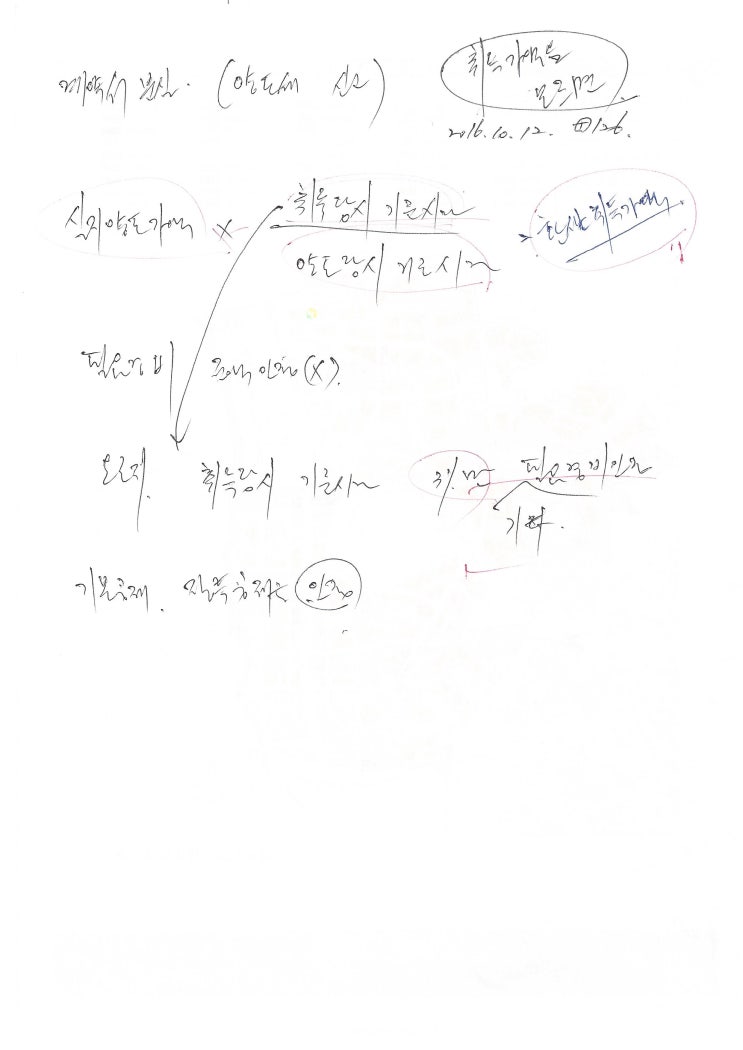 계약서 분실. (양도세 신고)
취득가액을
모르면
2016.10.12. ㊐126.
실지양도가액 × 취득당시 기준시가
양도당시 기준시가
환산취득가액
필요경비 인정(X).
오로지. 취득당시 기준시가 3%만 필요경비인정
기타.
기본공제. 장특공제는 인정